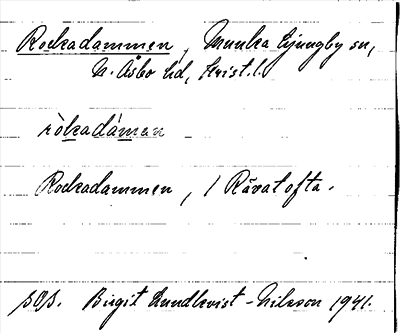 Rockadammen, Munka Ljungby sn,
N. Åsbo hd, Krist. l.
ròkadámen
Rockadammen, i Rävatofta.
sOs. Birgit Lundkvist-Nilsson 1941.